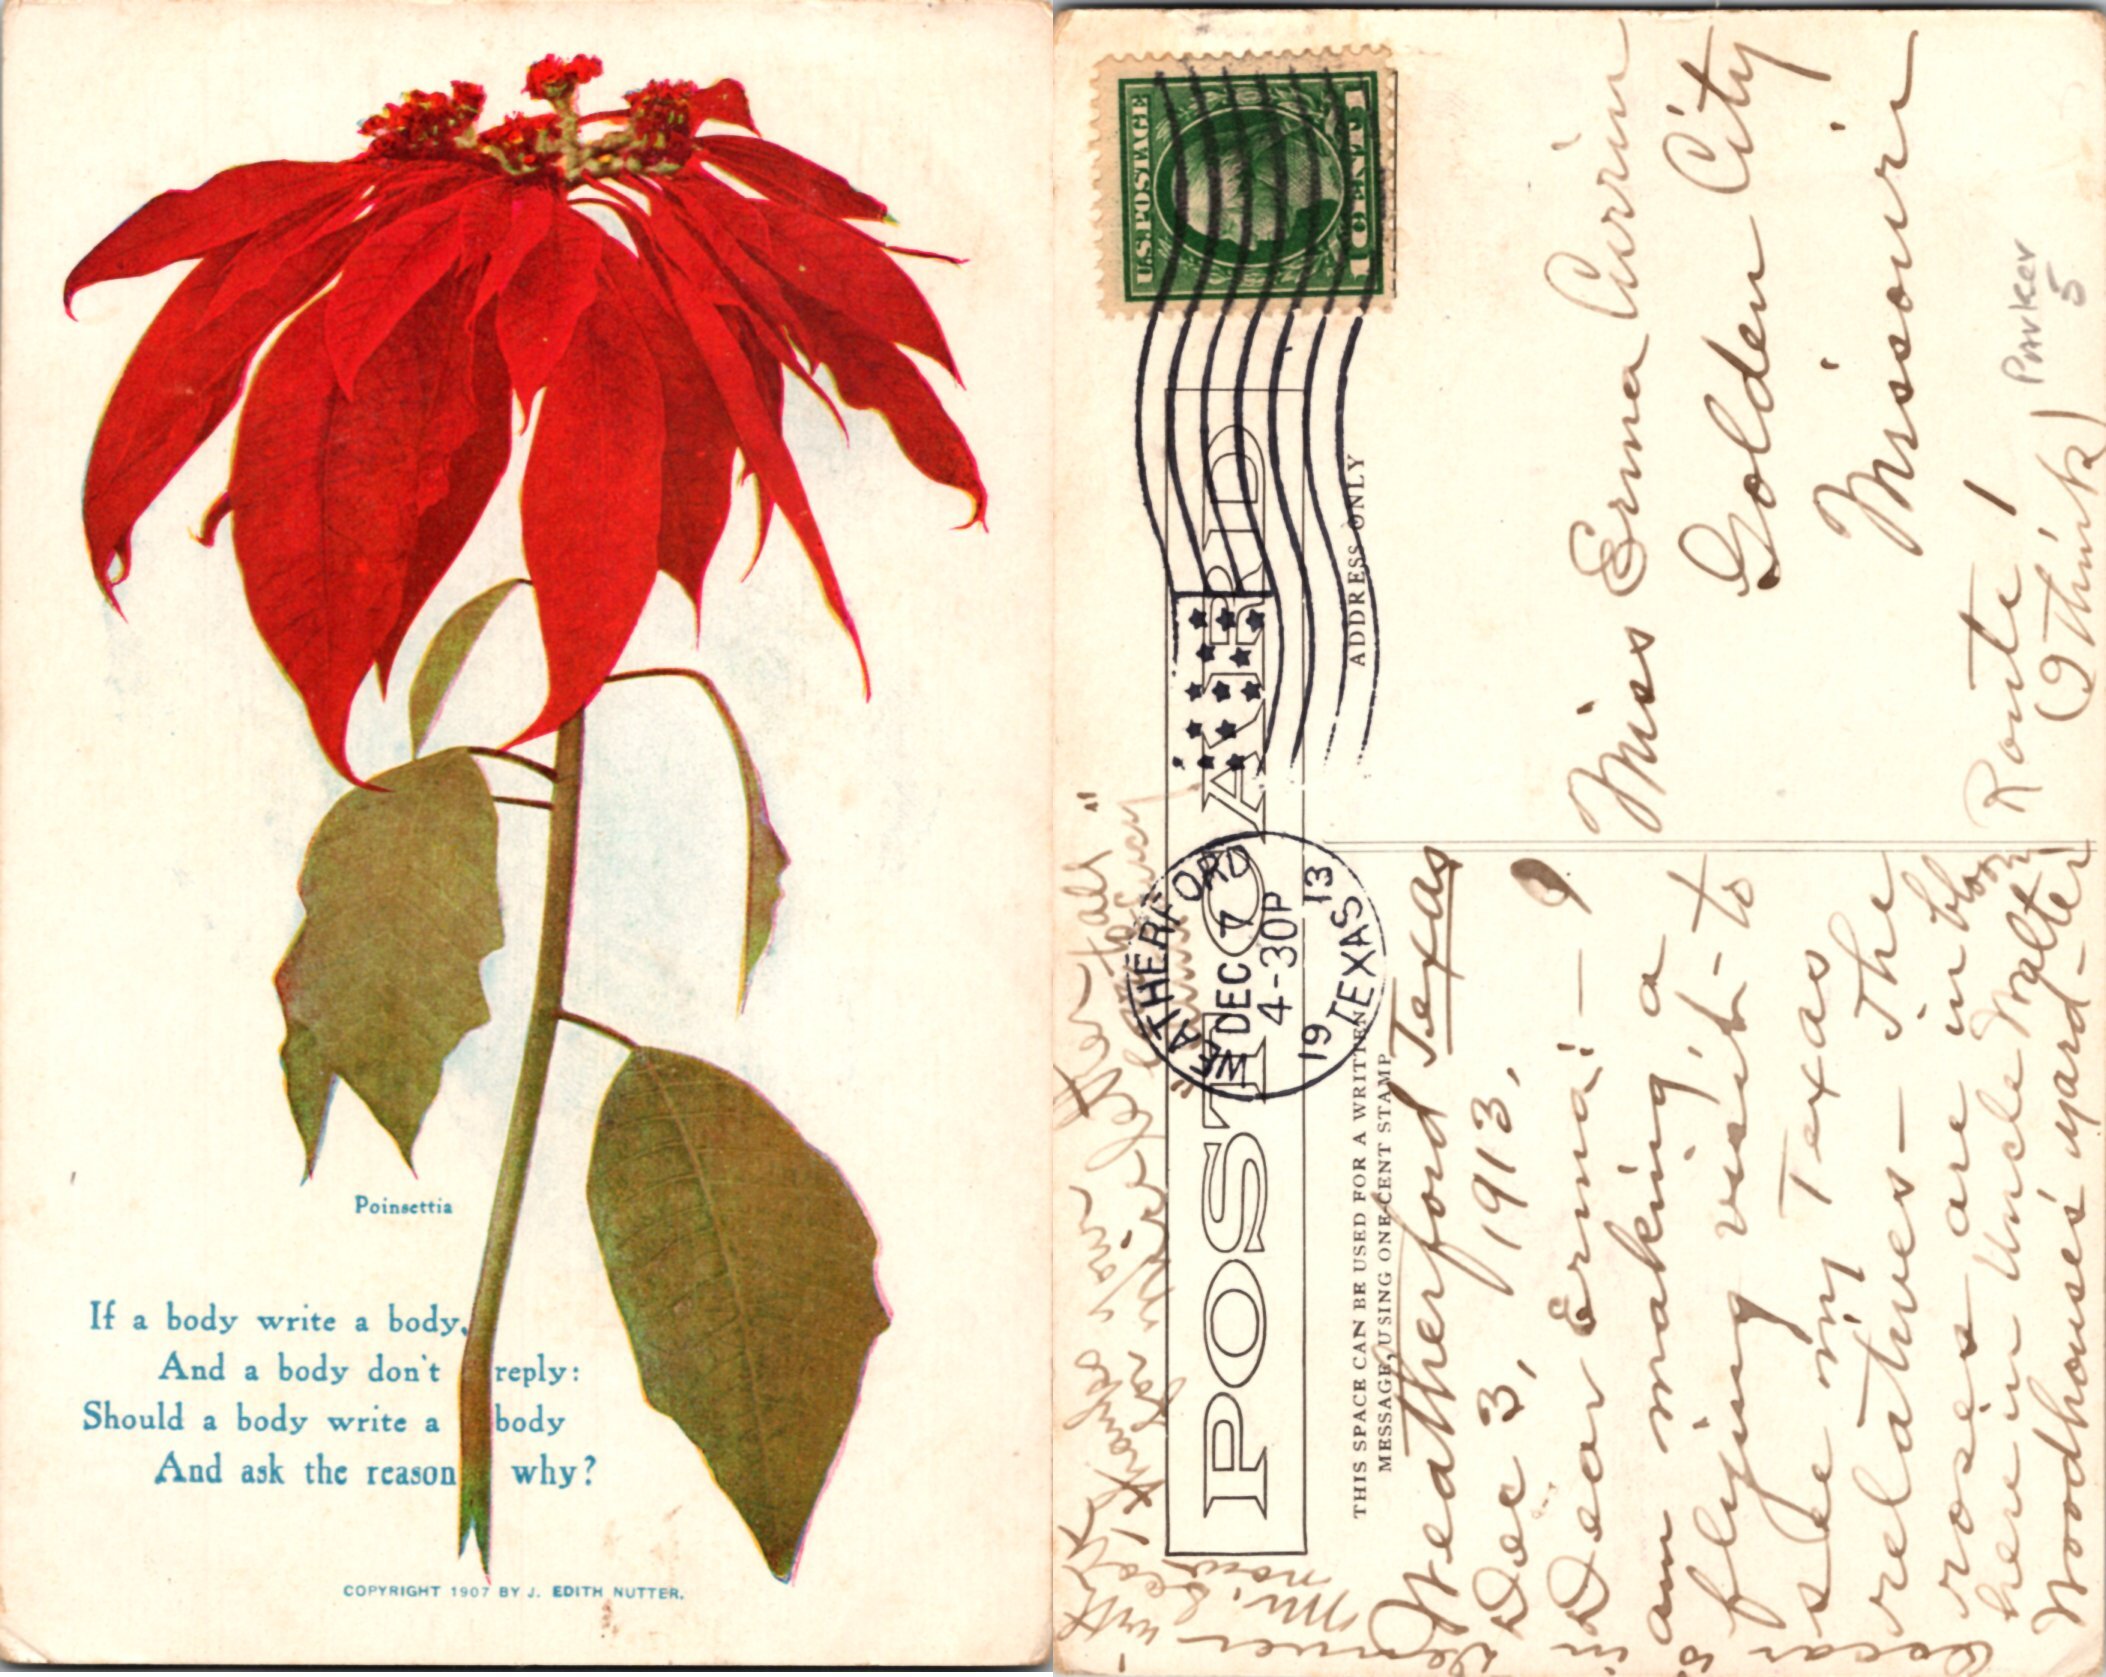 Poinsettia
If a body write a body,
And a body don't reply:
Should a body write a body
And ask the reason why?
COPYRIGHT 1907 BY J. EDITH NUTTER.
U.S. POSTAGE
1 CENT 1
POST CARD
THIS SPACE CAN BE USED FOR A WRITTEN
MESSAGE, USING ONE CENT STAMP
ADDRESS ONLY
WEATHERFORD
DEC 7
4-30P
19 13
TEXAS
Weatherford Texas
Dec 3, 1913,
Dear Erma:— I
am making a
flying visit - to
see my Texas
relatives— The
roses are in bloom
here in Uncle Walter
Woodhouse's yard—
Oscar
is
in
Denver
with
Mr.
now
Miss Erma Currin
Golden City
Missouri
Route 1
(I think)
Parker
5